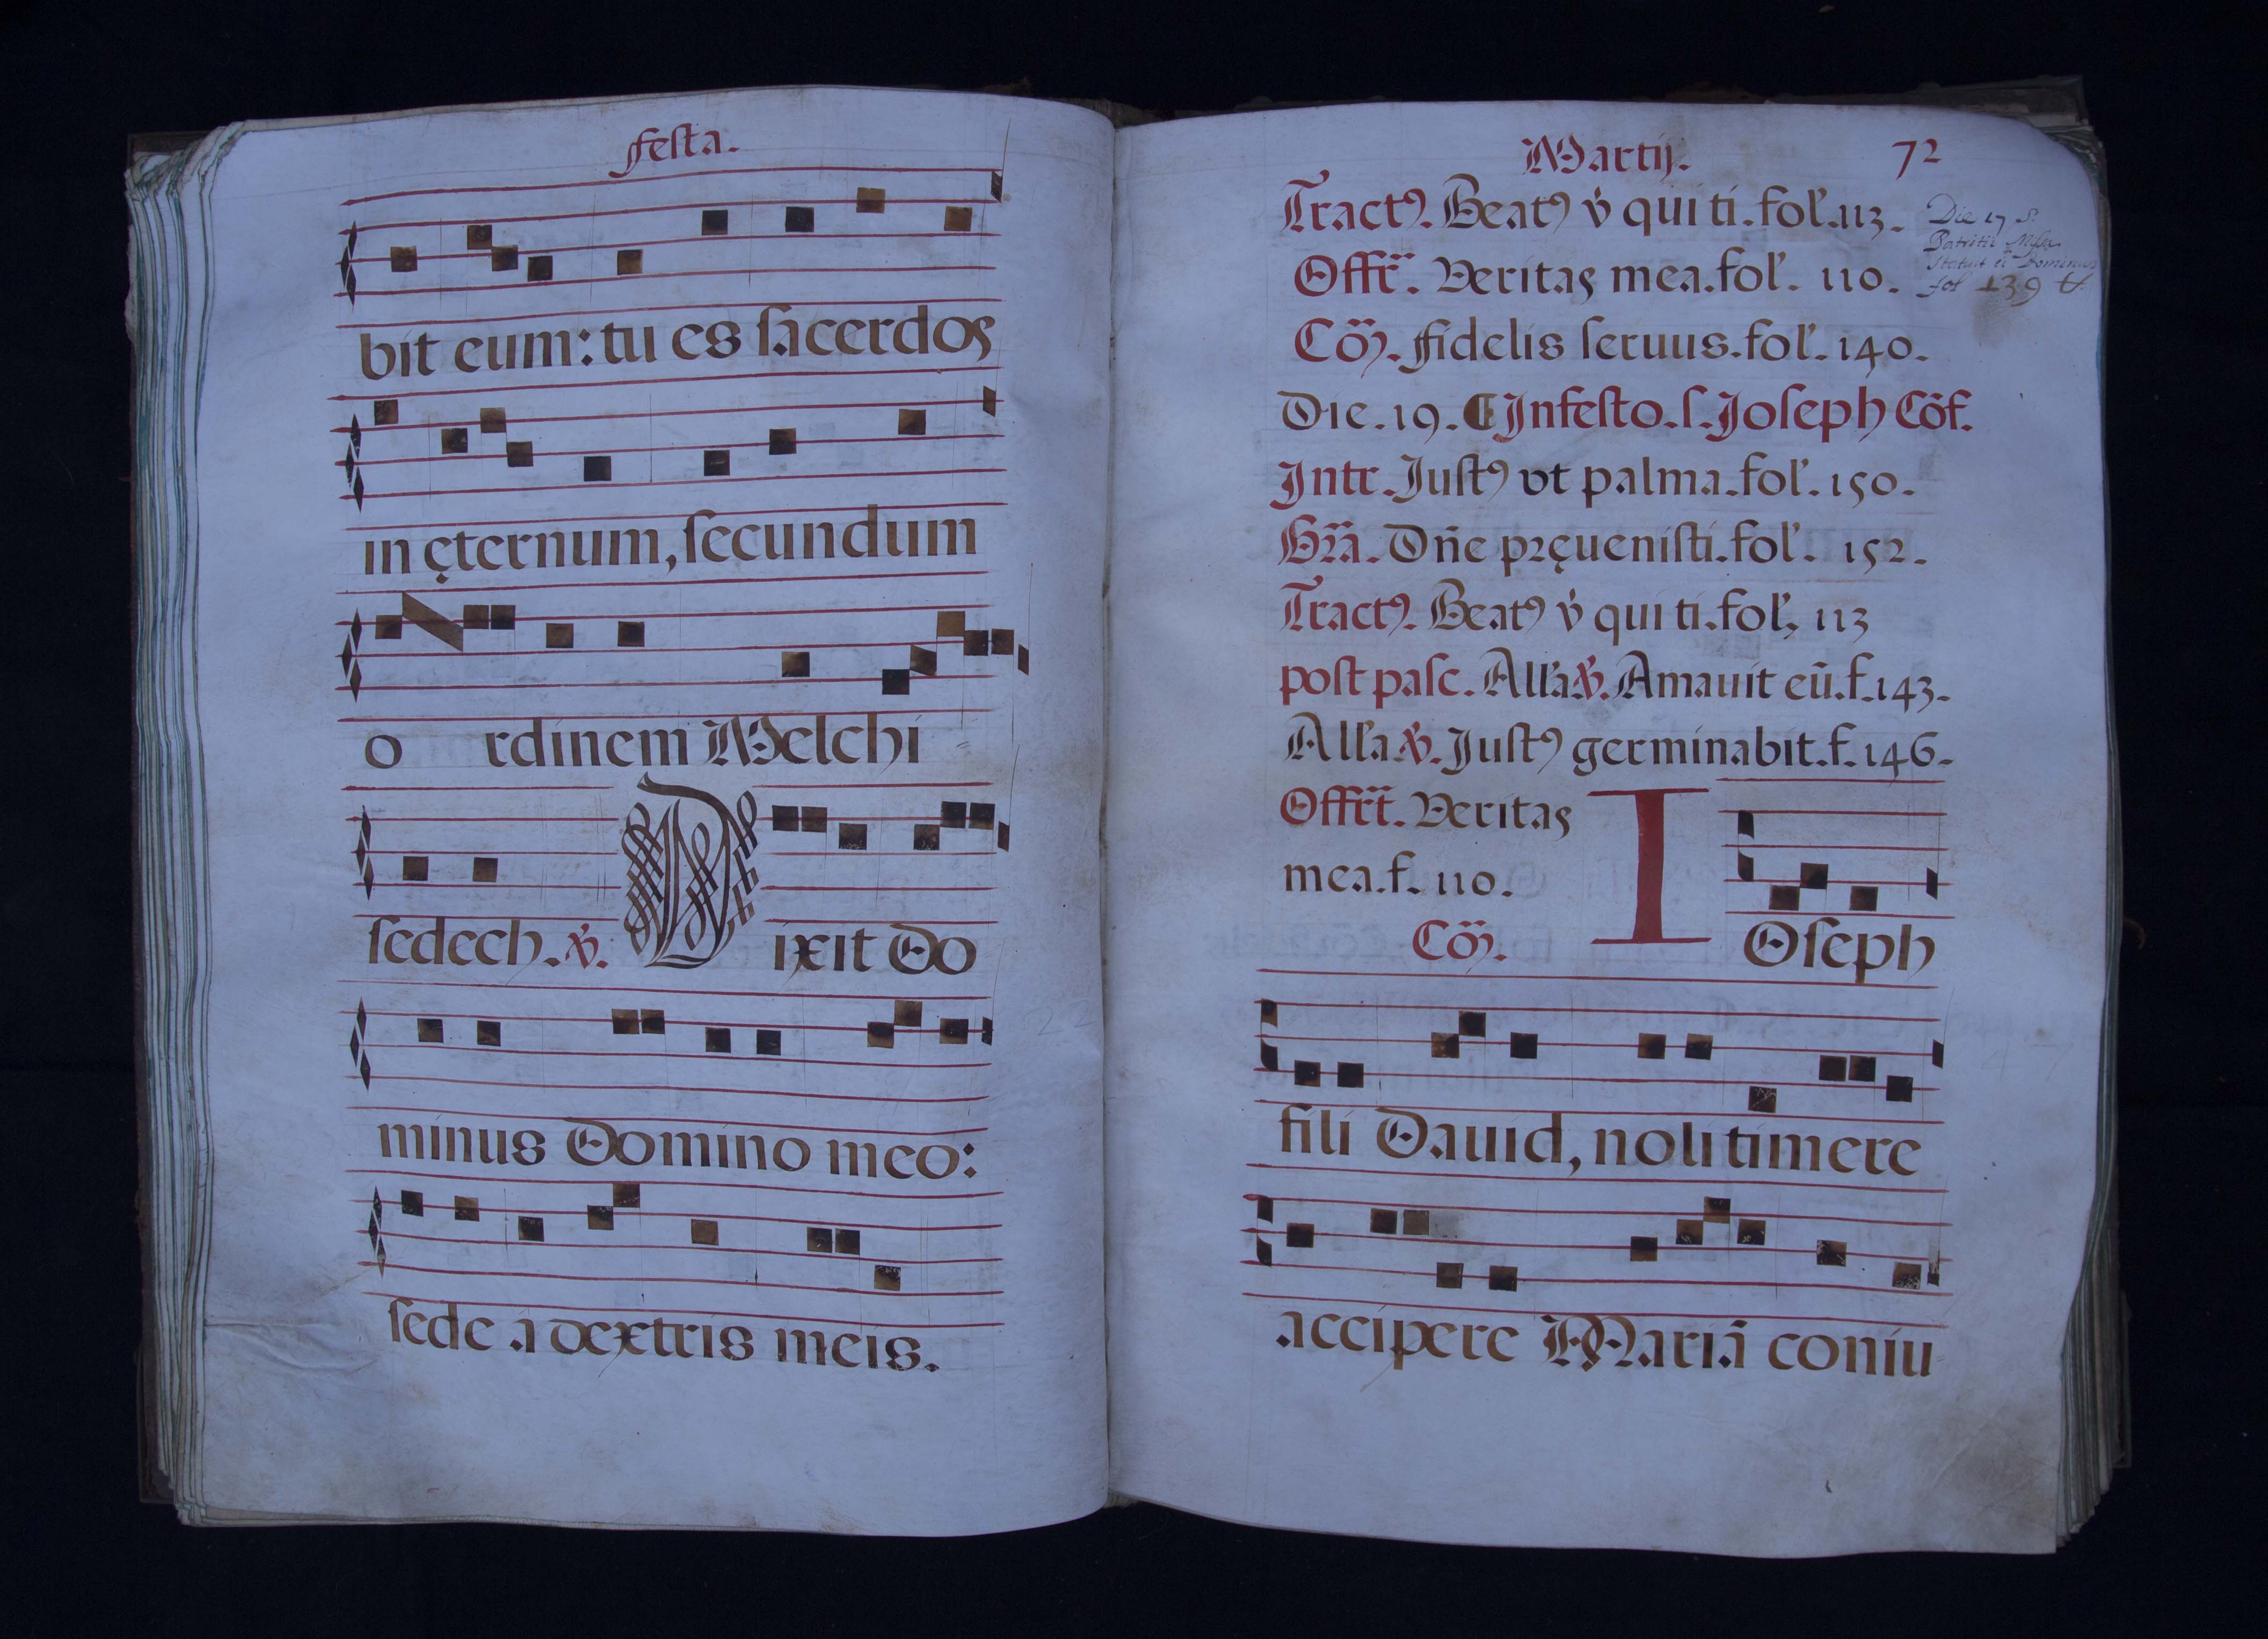 festa.
bit eum: tu es sacerdos
in ęternum, secundum
o rdinem Melchi
sedech. ℣. Dixit Do
minus Domino meo:
sede a dextris meis.
Martij. 72
Tractꝰ. Beatꝰ v̇ qui ti. fol̕. 113.
Offr̃. Veritas mea. fol̕. 110.
Cõ. fidelis seruus. fol̕. 140.
Die. 19. In festo. s. Joseph Cõf.
Intr. Justꝰ vt palma. fol̕. 150.
Grã. Dñe pręuenisti. fol̕. 152.
Tractꝰ. Beatꝰ v̇ qui ti. fol̕, 113
post pasc. All̕a ℣. Amauit eũ. f. 143.
All̕a ℣. Justꝰ germinabit. f. 146.
Offr̃t. Veritas
mea. f. 110.
Cõ. IOseph
fili Dauid, noli timere
accipere Mariã coniu
Die 17 S.
Patritii Missa
Statuit ei Dominus
fol 139